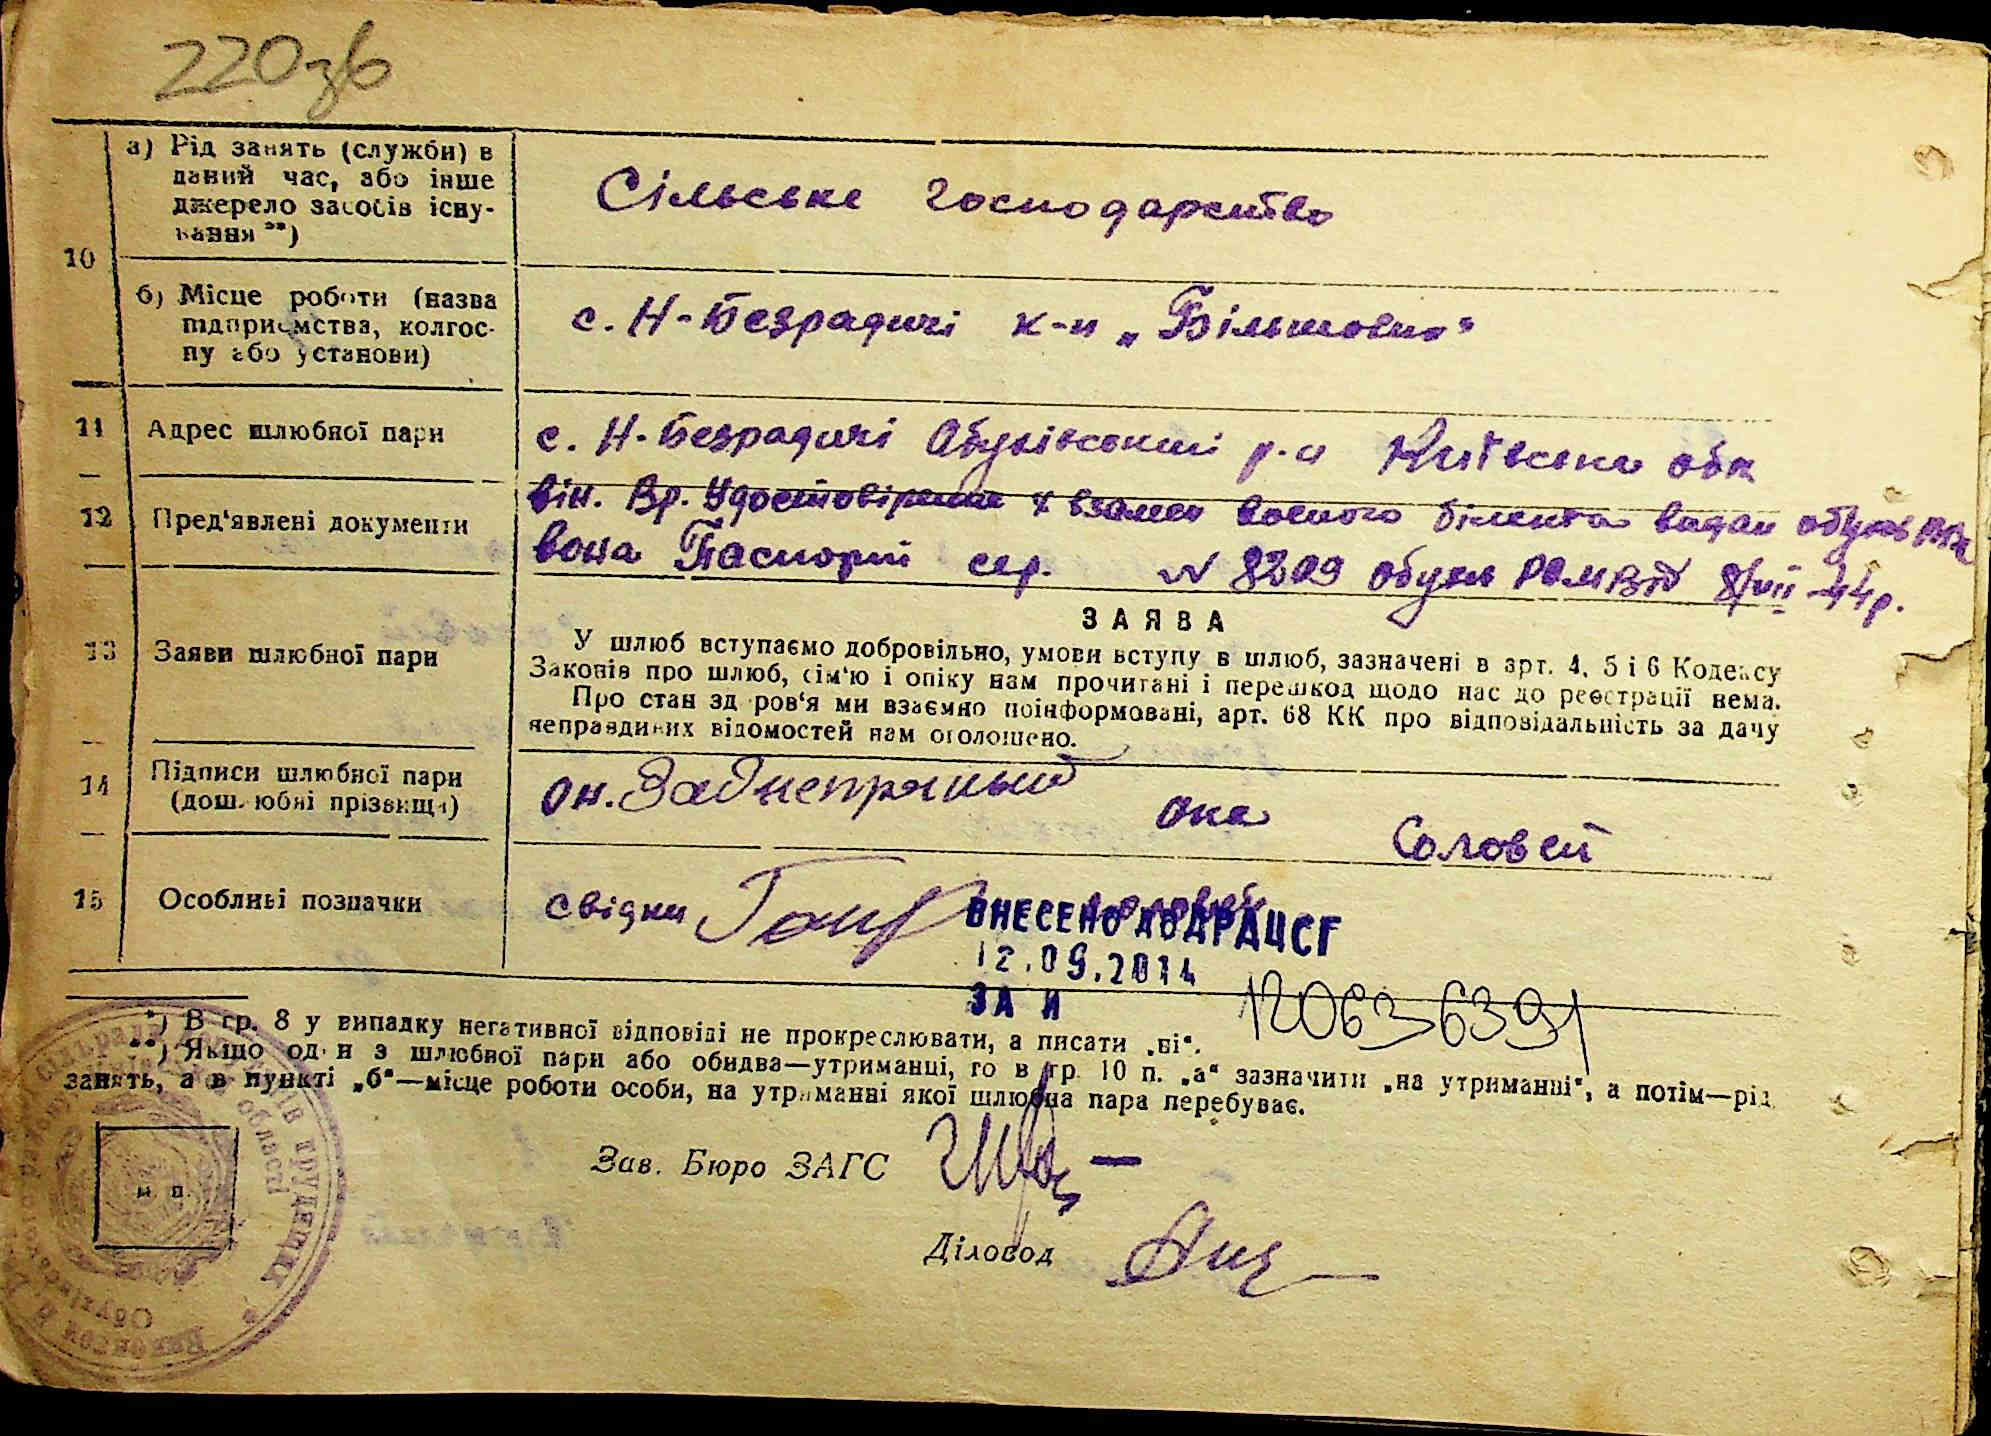 220зв
10
а) Рід занять (служби) в
даний час, або інше
джерело засобів існу-
вання **)
Сільське господарство
б) Місце роботи (назва
підприємства, колгос-
пу або установи)
с. Н-Безрадичі к-п „Більшовик"
11 Адрес шлюбної пари
с. Н-Безрадичі Обухівський р-н Київська обл
12 Пред'явлені документи
він. Вр. Удостовірение взамен воєного білента видан обухів
вона Паспорт сер. № 8209 обухів РОМВД 8/VII-44р.
13 Заяви шлюбної пари
ЗАЯВА
У шлюб вступаємо добровільно, умови вступу в шлюб, зазначені в арт. 4, 5 і 6 Кодексу
Законів про шлюб, сім'ю і опіку нам прочитані і перешкод щодо нас до реєстрації нема.
Про стан здоров'я ми взаємно поінформовані, арт. 68 КК про відповідальність за дачу
неправдивих відомостей нам оголошено.
14 Підписи шлюбної пари
(дошлюбні прізвища)
он. Заднепряный она Соловей
15 Особливі позначки
свідки
ВНЕСЕНО ДО ДРАЦСГ
12.09.2014
ЗА И 120636391
*) В гр. 8 у випадку негативної відповіді не прокреслювати, а писати „ні".
**) Якщо один з шлюбної пари або обидва—утриманці, то в гр. 10 п. „а" зазначити „на утриманні", а потім—рід
занять, а в пункті „б"—місце роботи особи, на утриманні якої шлюбна пара перебуває.
м. п.
Зав. Бюро ЗАГС
Діловод